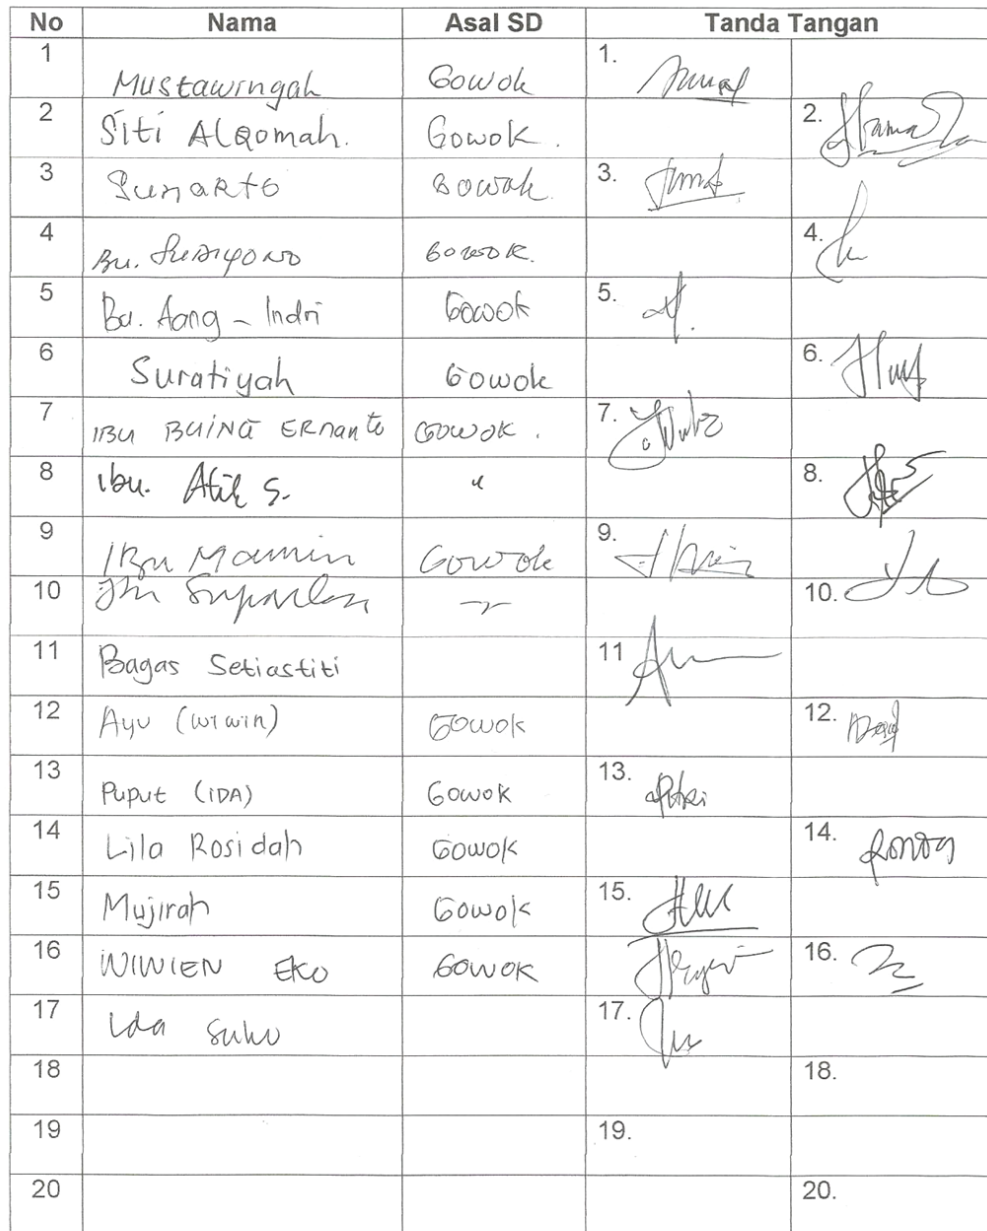 No Nama Asal SD Tanda Tangan
1 Mustawingah Gowok 1.
2 Siti AlQomah. Gowok . 2.
3 Sunarto Gowok. 3.
4 Bu. Gowok. 4.
5 Bu. Aang - Indri Gowok 5.
6 Suratiyah Gowok 6.
7 IBU Gowok . 7.
8 Ibu. Atik S. " 8.
9 IBu Mamin Gowok 9.
10 Suparlan 10.
11 Bagas Setiastiti 11
12 Ayu (wiwin) Gowok 12.
13 Puput (IDA) Gowok 13.
14 Lila Rosidah Gowok 14.
15 Mujirah Gowok 15.
16 WIWIEN EKO Gowok 16.
17 Ida Suko 17.
18 18.
19 19.
20 20.